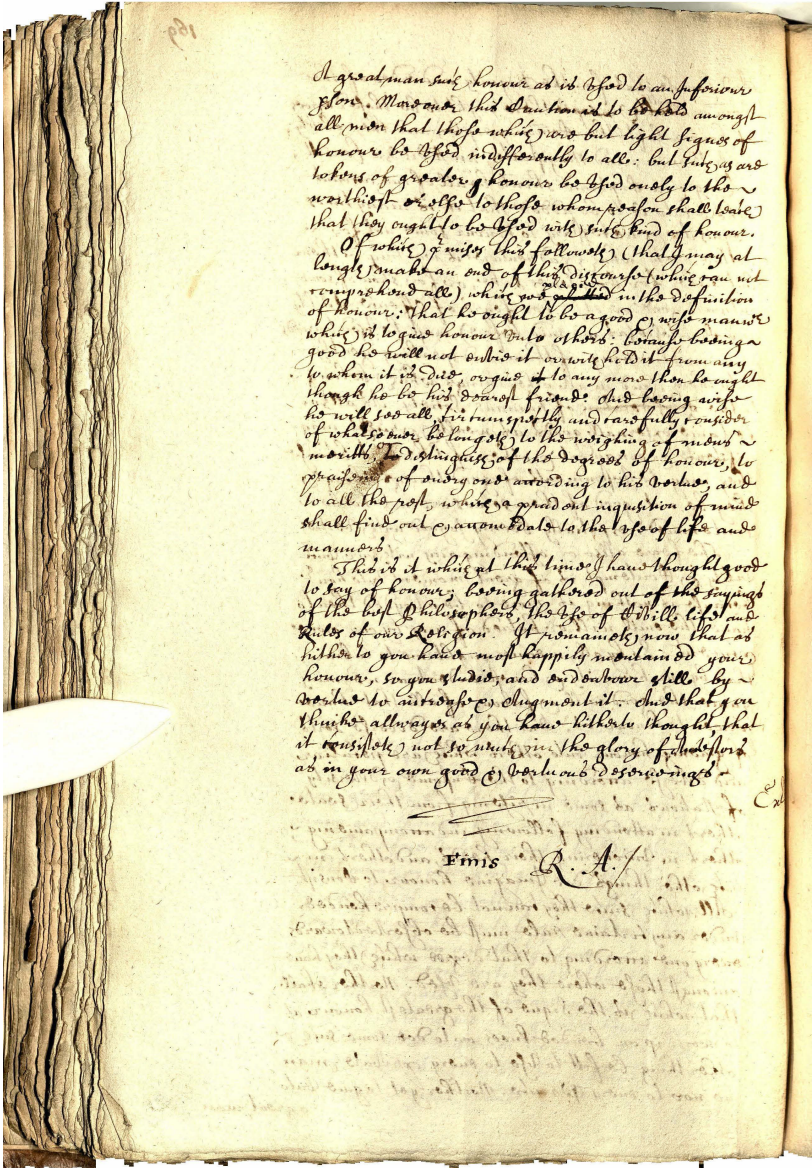 A great man such honour as is Vsed to an Inferiour
pson. Moreouer this Caution is to be held amongst
all men that those which are but light signes of
honour be Vsed indifferently to all: but such as are
tokens of greater honour be Vsed onely to the
worthiest or else to those whom reason shall teach
that they ought to be Vsed with such kind of honour.
Of which pmises this followeth (that I may at
length make an end of this discourse (which can not
comprehend all) which we placed in the definition
of honour: that he ought to be a good & wise man
which is to giue honour vnto others: because beeing
good he will not envie it or with hold it from any
to whom it is due, or giue it to any more then he ought
though he be his dearest friend. And beeing wise
he will see all, circumspectly and carefully consider
of whatsoeuer belongeth to the weighing of mens
meritts, To distinguish of the degrees of honour, to
praiseing of euery one according to his vertue, and
to all the rest, which a prudent inquisition of mind
shall find out & accomodate to the vse of life and
manners
This is it which at this time I haue thought good
to say of honour; beeing gathered out of the sayings
of the best Philosophers, the vse of Civill life and
Rules of our Religion. It remaineth now that as
hitherto you haue most happily mentained your
honour, so you studie, and endeavour still by
vertue to increase & Augment it. And that you
thinke allwayes as you haue hitherto thought, that
it consisteth not so much in the glory of Ancestors
as in your own good & vertuous deserueings
Finis R. A.
169